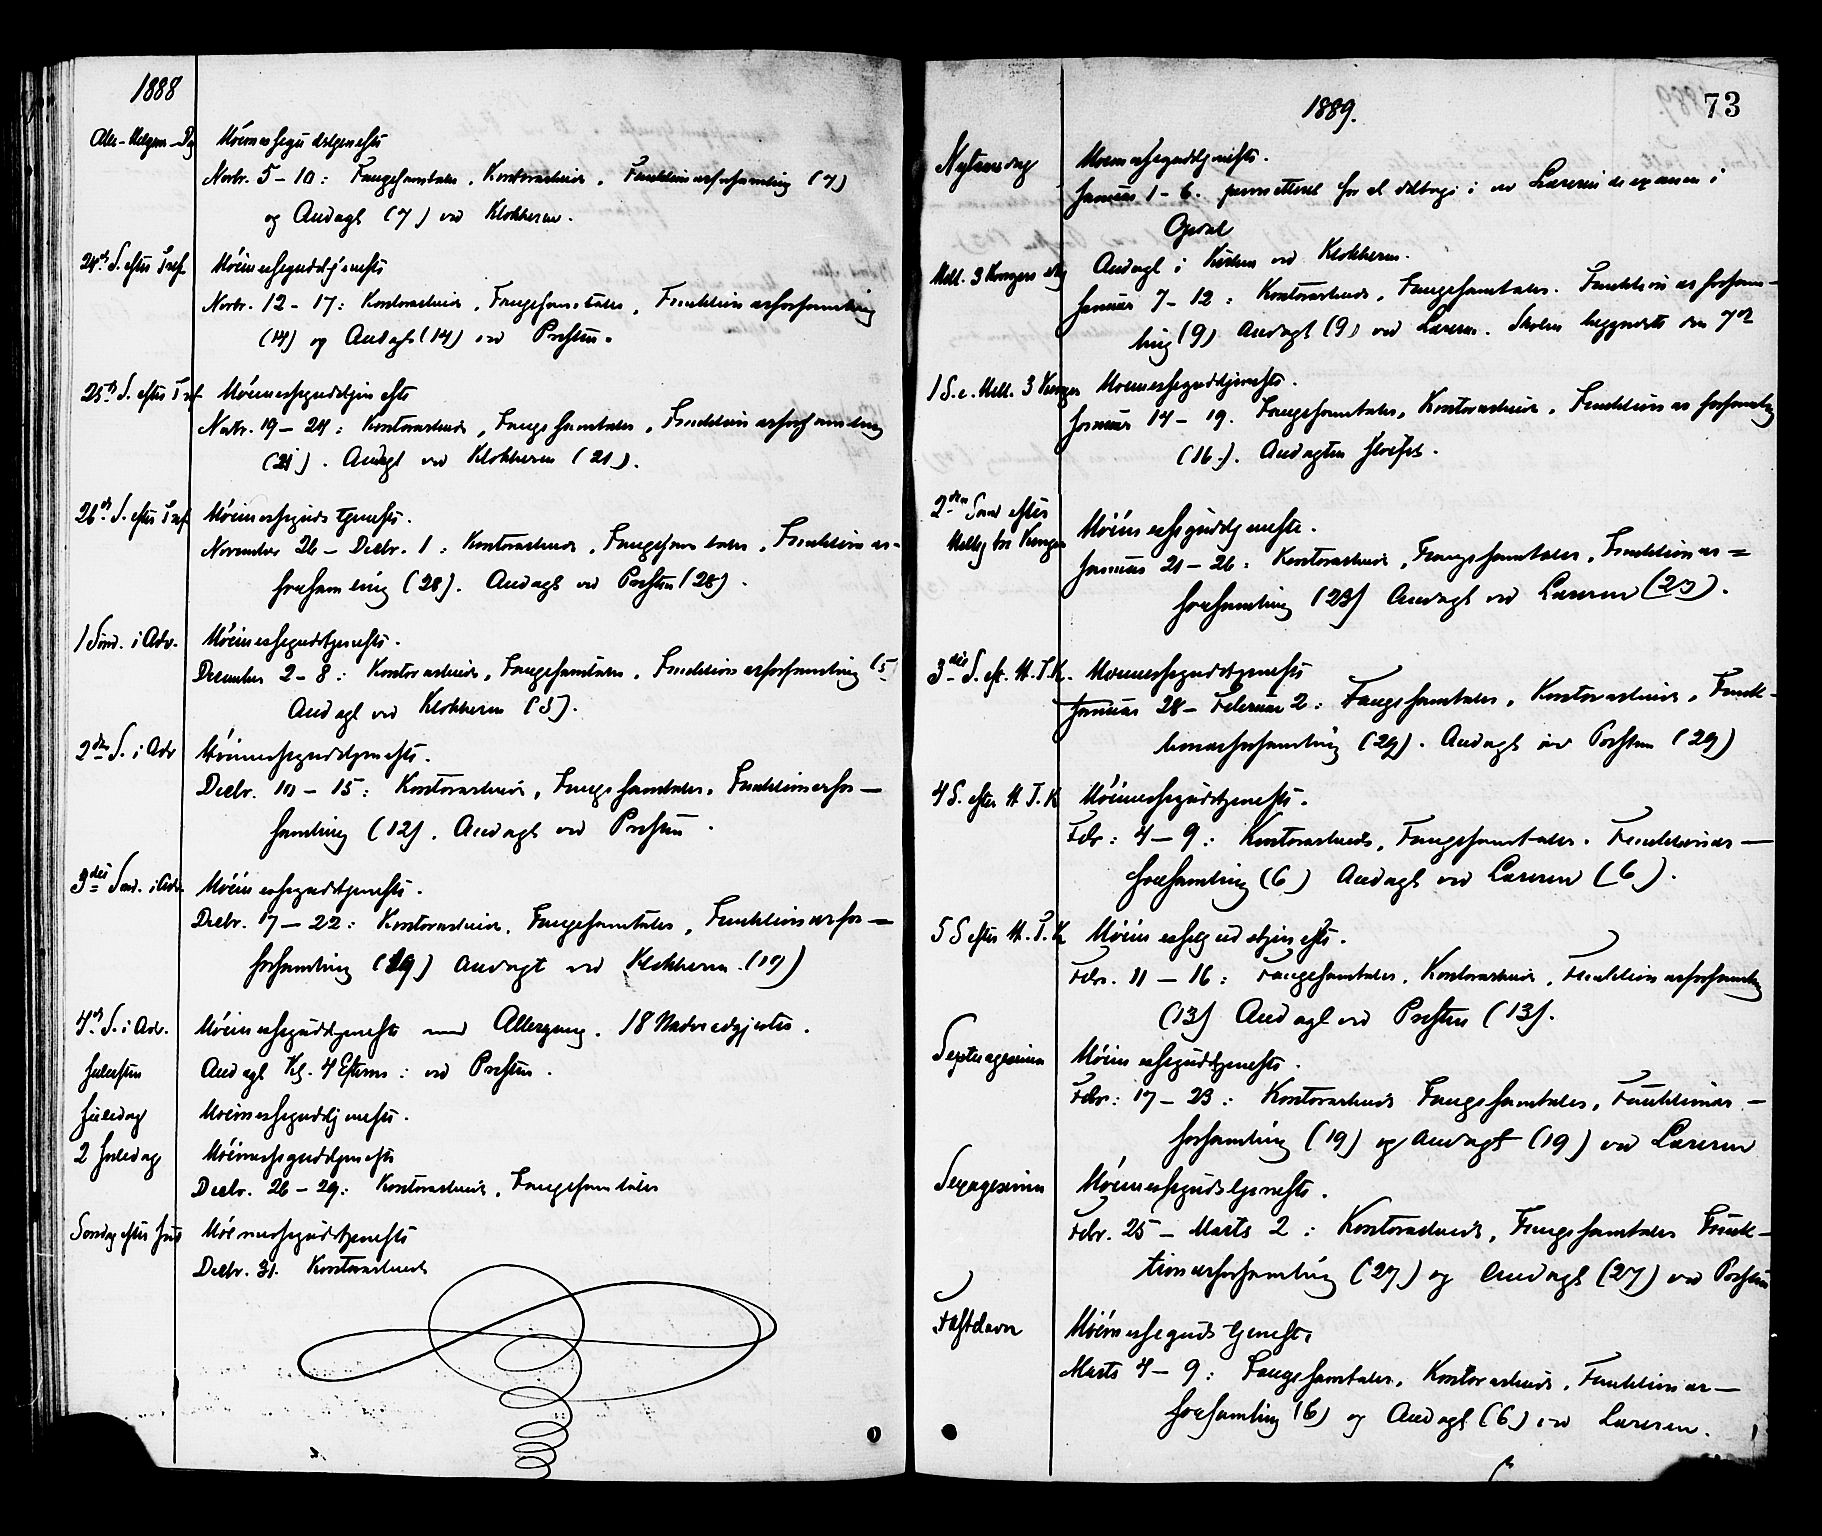 1888
Alle-Helgens-Dg Höimessegudstjeneste
Novbr. 5-10: Fangesamtaler, Kontorarbeide, Funktionærforsamling (7)
og Andagt (7) ved Klokkeren.
24de S. efter Tref. Höimessegudstjeneste
Novbr. 12-17: Kontorarbeide, Fangesamtaler, Funktionærforsamling
(14) og Andagt (14) ved Presten.
25de S. efter Tref. Höimessegudstjeneste
Novbr. 19-24: Kontorarbeide, Fangesamtaler, Funktionærforsamling
(21). Andagt ved Klokkeren (21).
26de S. efter Tref. Höimessegudstjeneste.
November 26 - Decbr. 1: Kontorarbeide, Fangesamtaler, Funktionær-
forsamling (28). Andagt ved Presten (28).
1 Sönd. i Adv. Höimessegudstjeneste.
December 2-8: Kontorarbeide, Fangesamtaler, Funktionærforsamling (5)
Andagt ved Klokkeren (5).
2den S. i Adv Höimessegudstjeneste.
Decbr. 10-15: Kontorarbeide, Fangesamtaler, Funktionærfor-
samling (12). Andagt ved Presten.
3die Sönd. i Adv. Höimessegudstjeneste.
Decbr. 17-22: Kontorarbeide, Fangesamtaler, Funktionærfor=
forsamling (19) Andagt ved Klokkeren. (19)
4de S. i Adv. Höimessegudstjeneste med Altergang. 18 Nadvergjester.
Juleaften Andagt Kl. 4 Efterm: ved Presten.
Juledag Höimessegudstjeneste.
2 Juledag Höimessegudstjeneste
Decbr. 26-29: Kontorarbeide, Fangesamtaler
Søndag efter Juul Höimessegudstjeneste
Decbr. 31. Kontorarbeide
73
1889.
Nytaarsdag Höimessegudstjeneste.
Januar 1-6. permitteret for at deltage i en Lærerindeexamen i
Opdal
Andagt i Kirken ved Klokkeren.
Hell. 3 Kongers dg Januar 7-12: Kontorarbeide, Fangesamtaler. Funktionærforsam-
ling (9) Andagt (9) ved Læreren. Skolen begyndte den 7de
1 S. e. Hell. 3 Konger Höimessegudstjeneste.
Januar 14-19. Fangesamtaler, Kontorarbeide, Funktionærforsamling
(16.). Andagten sløifet.
2den Sönd efter
Hellig tre Konger Höimessegudstjeneste.
Januar 21-26: Kontorarbeide, Fangesamtaler, Funktionær=
forsamling (23) Andagt ved Læreren (23).
3die S. ef. H. T. K. Höimessegudstjeneste
Januar 28 - Februar 2: Fangesamtaler, Kontorarbeide, Funk-
tionærforsamling (29). Andagt ved Presten (29)
4 S. efter H. T. K Höimessegudstjeneste.
Febr: 4-9: Kontorarbeide, Fangesamtaler. Funktionær-
forsamling (6) Andagt ved Læreren (6).
5 S efter H. T. K Höimessegudstjeneste.
Febr. 11-16: Fangesamtaler, Kontorarbeide, Funktionærforsamling
(13) Andagt ved Presten (13).
Septuagesima Höimessegudstjeneste.
Febr: 17-23: Kontorarbeide Fangesamtaler, Funktionær-
forsamling (19) og Andagt (19) ved Læreren
Sexagesima Höimessegudstjeneste.
Febr. 25 - Marts 2: Kontorarbeide, Fangesamtaler Funk-
tionærforsamling (27) og Andagt (27) ved Presten
Fastelavn Höimessegudstjeneste
Marts 4-9: Fangesamtaler, Kontorarbeide, Funktionær-
forsamling (6) og Andagt (6) ved Læreren.